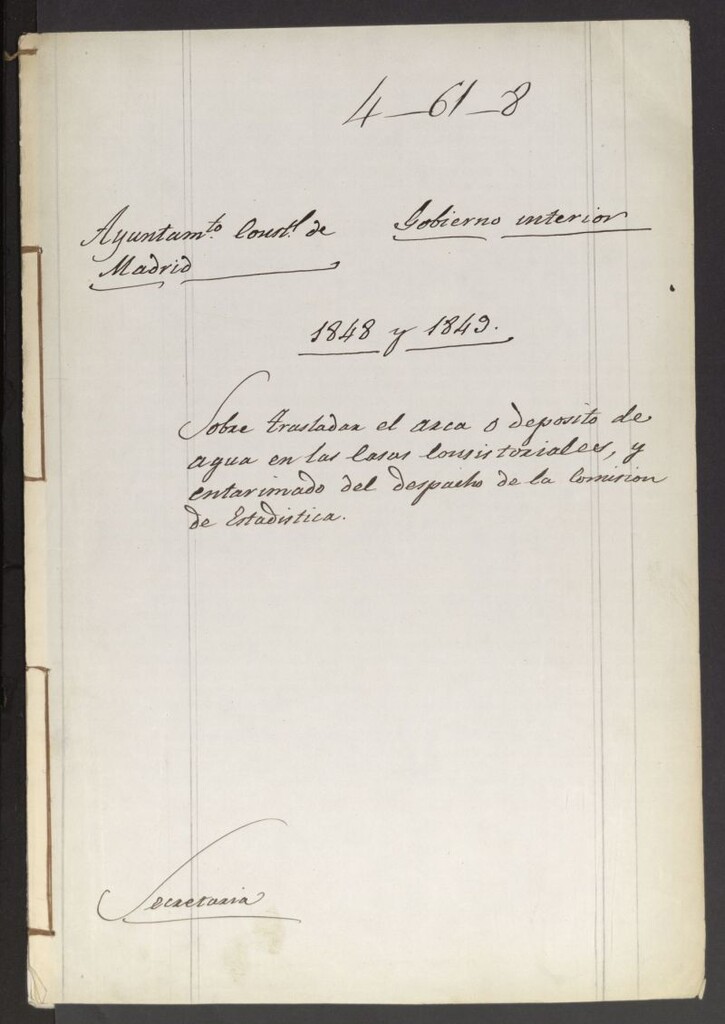 4-61-8
Ayuntamto. Constl. de
Madrid
Gobierno interior
1848 y 1849.
Sobre trasladar el arca o deposito de
agua en las Casas Consistoriales, y
entarimado del despacho de la Comision
de Estadistica.
Secretaria